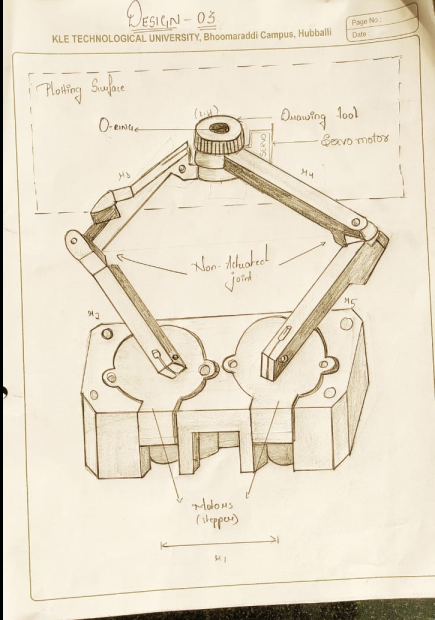 DESIGN - 03
KLE TECHNOLOGICAL UNIVERSITY, Bhoomaraddi Campus, Hubballi
Page No.:
Date :
Plotting Surface
(x,y)
O-RING
Drawing Tool
SERVO
Servo motor
x3
x4
Non-Actuated
joint
x2
x5
Motors
(stepper)
x1